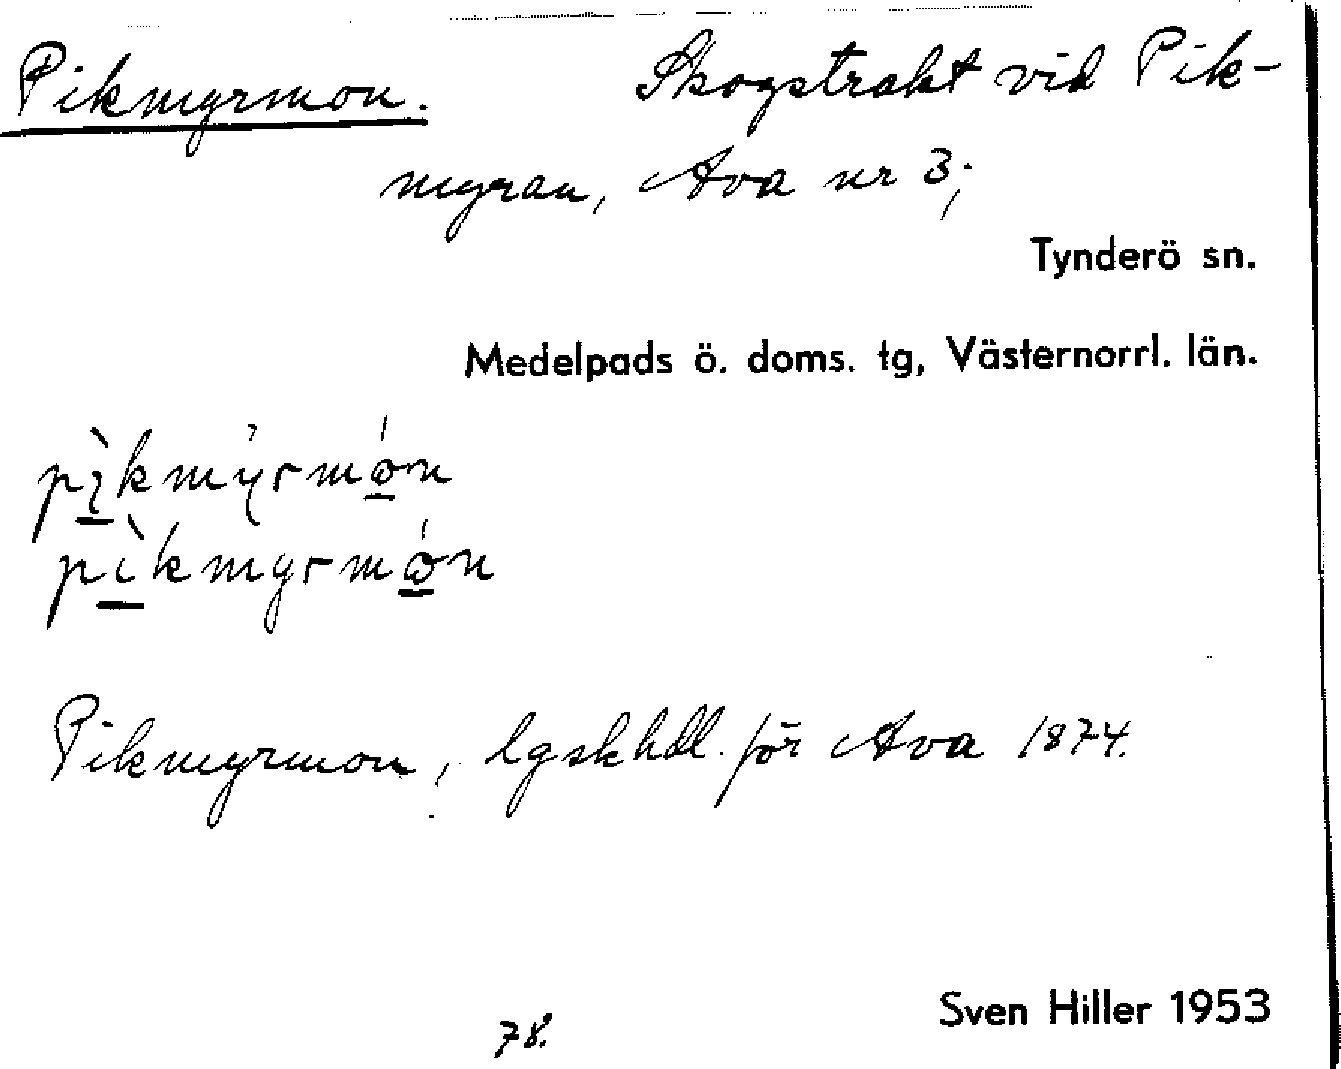 Pikmyrmon. Skogstrakt vid Pik-
myran, Ava nr 3;
Tynderö sn.
Medelpads ö. doms. tg, Västernorrl. län.
pìkmyrmón
pìkmyrmón
Pikmyrmon, lgskhdl. för Ava 1874.
Sven Hiller 1953
78.